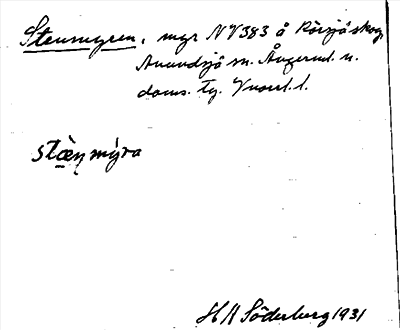 Stenmyren, myr NV383 å Rörsjöskog,
Anundsjö sn. Ångerml. n.
doms. Tg. Vnorrl. l.
stæ̀n mýra
H A Söderberg 1931